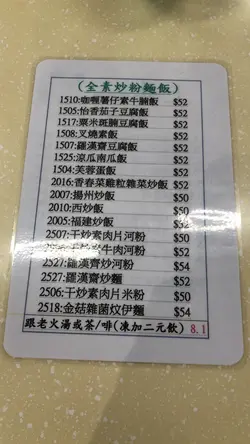 (全素炒粉麵飯)
1510:咖喱薯仔素牛腩飯 $52
1505:怡香茄子豆腐飯 $52
1517:粟米斑腩豆腐飯 $52
1508:叉燒素飯 $52
1507:羅漢齋豆腐飯 $52
1525:涼瓜南瓜飯 $52
1504:芙蓉蛋飯 $52
2016:香春菜雞粒雜菜炒飯 $52
2007:揚州炒飯 $50
2010:西炒飯 $50
2005:福建炒飯 $52
2507:干炒素肉片河粉 $50
干炒 牛肉河粉 $52
2527:羅漢齋炒河粉 $54
2527:羅漢齋炒麵 $52
2506:干炒素肉片米粉 $50
2518:金菇雜菌炆伊麵 $54
跟老火湯或茶/啡(凍加二元飲) 8.1